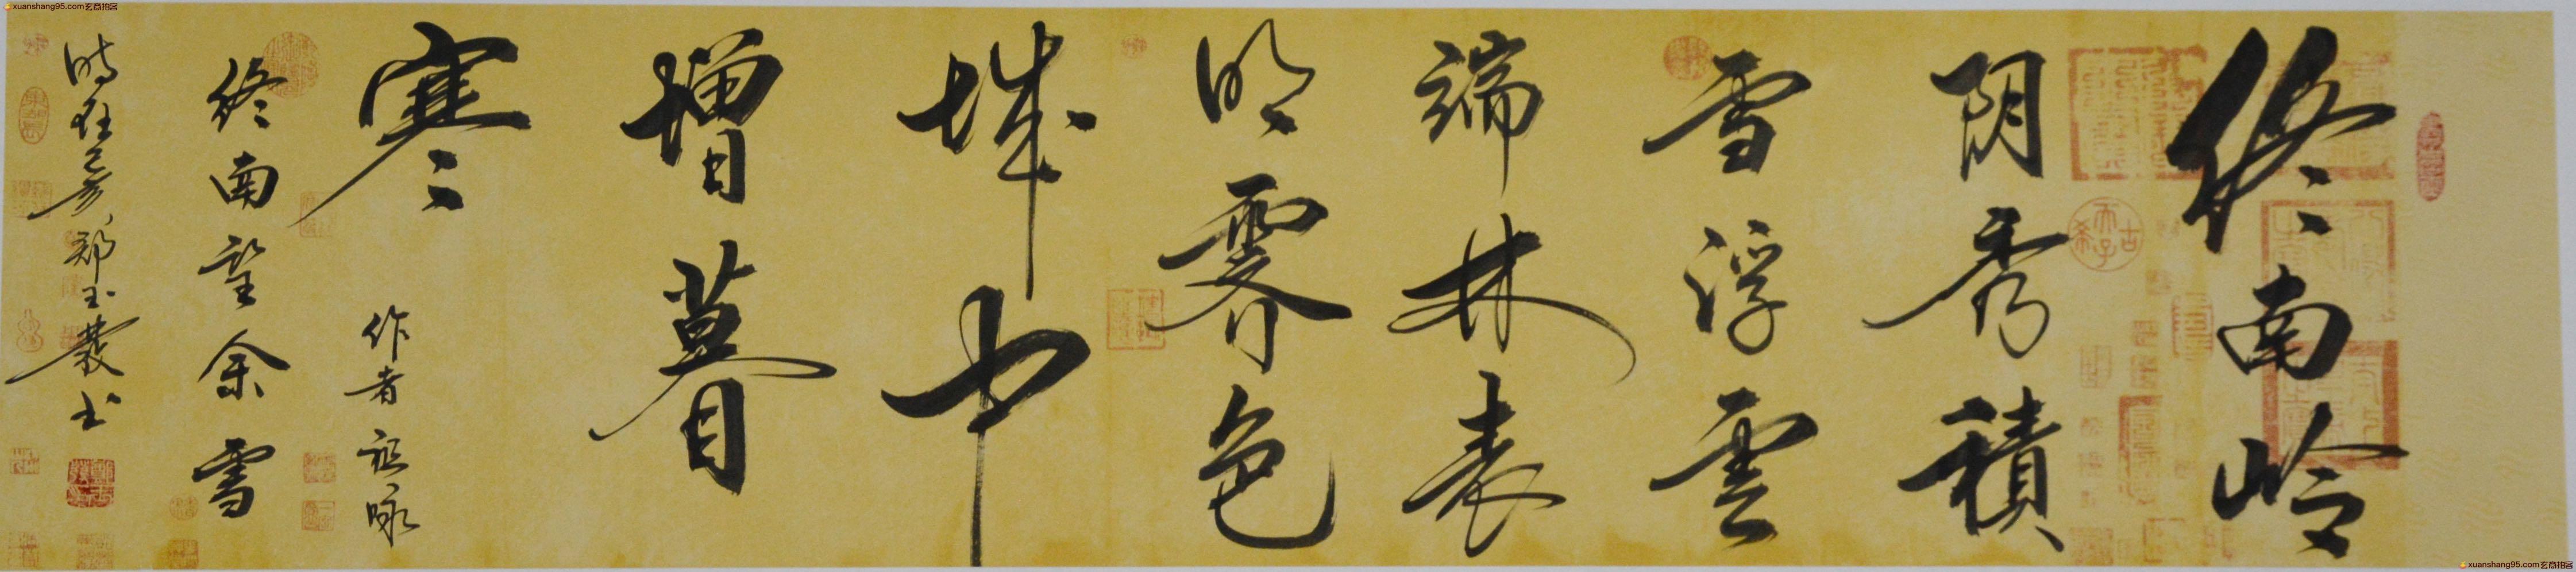 终南岭
阴秀積
雪浮雲
端林表
明霽色
城中
增暮
寒
作者祖咏
終南望余雪
時在己亥鄭玉慶书
xuanshang95.com玄商拍客
xuanshang95.com玄商拍客